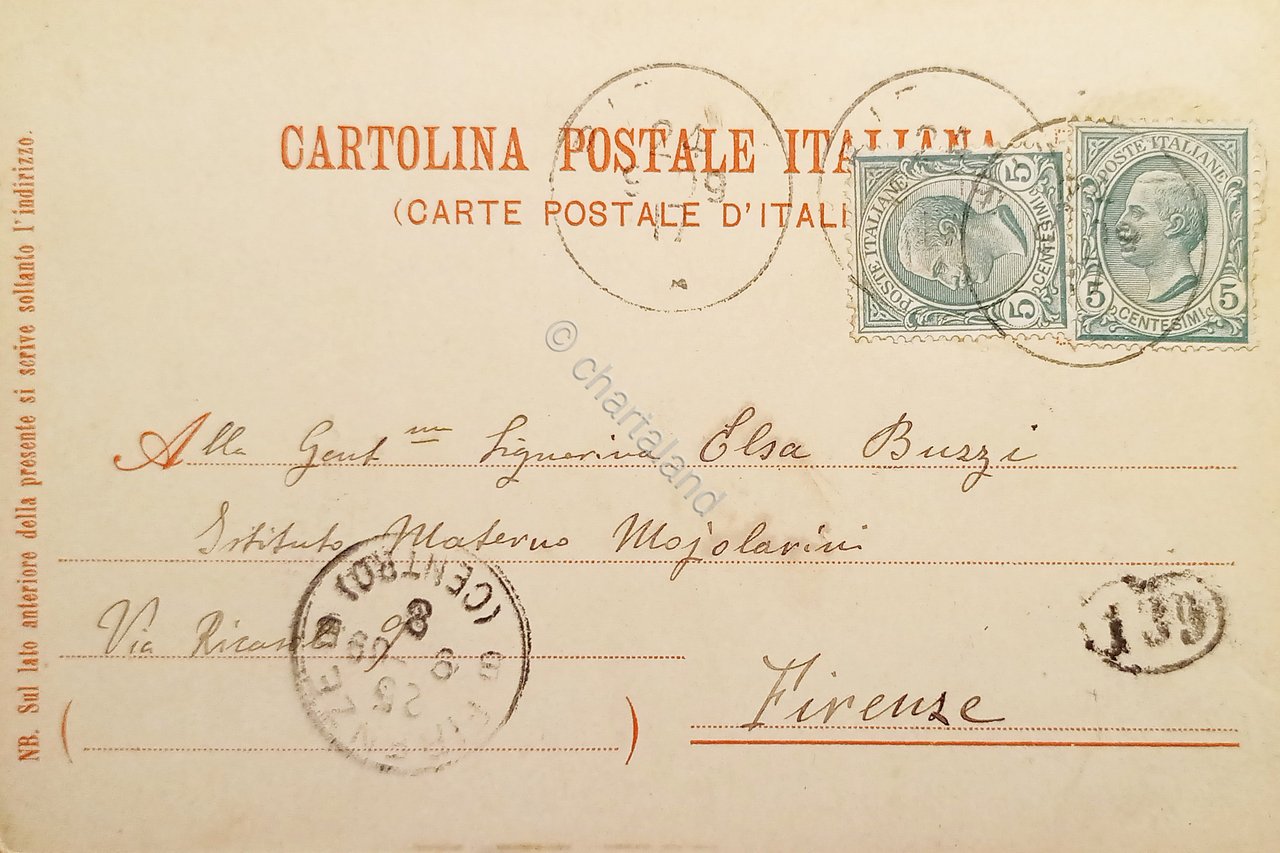 CARTOLINA POSTALE ITALIANA
(CARTE POSTALE D'ITALI
24
9 09
17
24
POSTE ITALIANE
5 CENTESIMI 5
POSTE ITALIANE
5 CENTESIMI 5
© chartaland
Alla Gent.ma Signorina Elsa Buzzi
Istituto Materno Mojolarini
Via Ricasoli 9
Firenze
FIRENZE
(CENTRO)
139
NB. Sul lato anteriore della presente si scrive soltanto l'indirizzo.